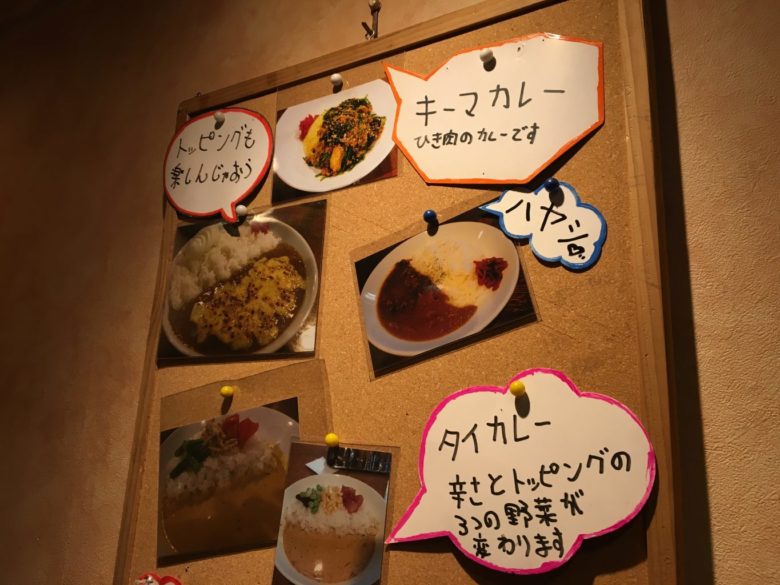 トッピングも
楽しんじゃおう
キーマカレー
ひき肉のカレーです
ハヤシ
タイカレー
辛さとトッピングの
3つの野菜が
変わります